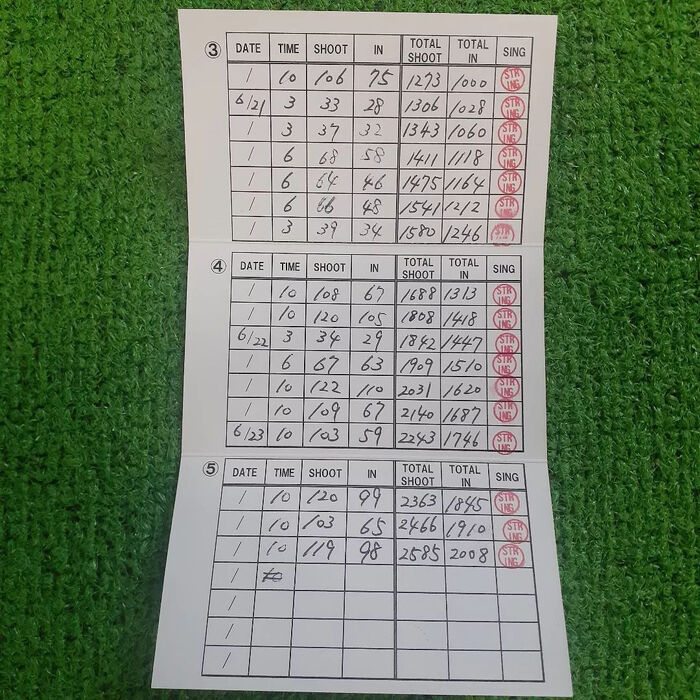 ③ DATE TIME SHOOT IN TOTAL SHOOT TOTAL IN SING
/ 10 106 75 1273 1000 STRING
6/21 3 33 28 1306 1028 STRING
/ 3 37 32 1343 1060 STRING
/ 6 68 58 1411 1118 STRING
/ 6 64 46 1475 1164 STRING
/ 6 66 48 1541 1212 STRING
/ 3 39 34 1580 1246 STR
④ DATE TIME SHOOT IN TOTAL SHOOT TOTAL IN SING
/ 10 108 67 1688 1313 STRING
/ 10 120 105 1808 1418 STRING
6/22 3 34 29 1842 1447 STRING
/ 6 67 63 1909 1510 STRING
/ 10 122 110 2031 1620 STRING
/ 10 109 67 2140 1687 STRING
6/23 10 103 59 2243 1746 STRING
⑤ DATE TIME SHOOT IN TOTAL SHOOT TOTAL IN SING
/ 10 120 99 2363 1845 STRING
/ 10 103 65 2466 1910 STRING
/ 10 119 98 2585 2008 STRING
/ 10
/
/
/